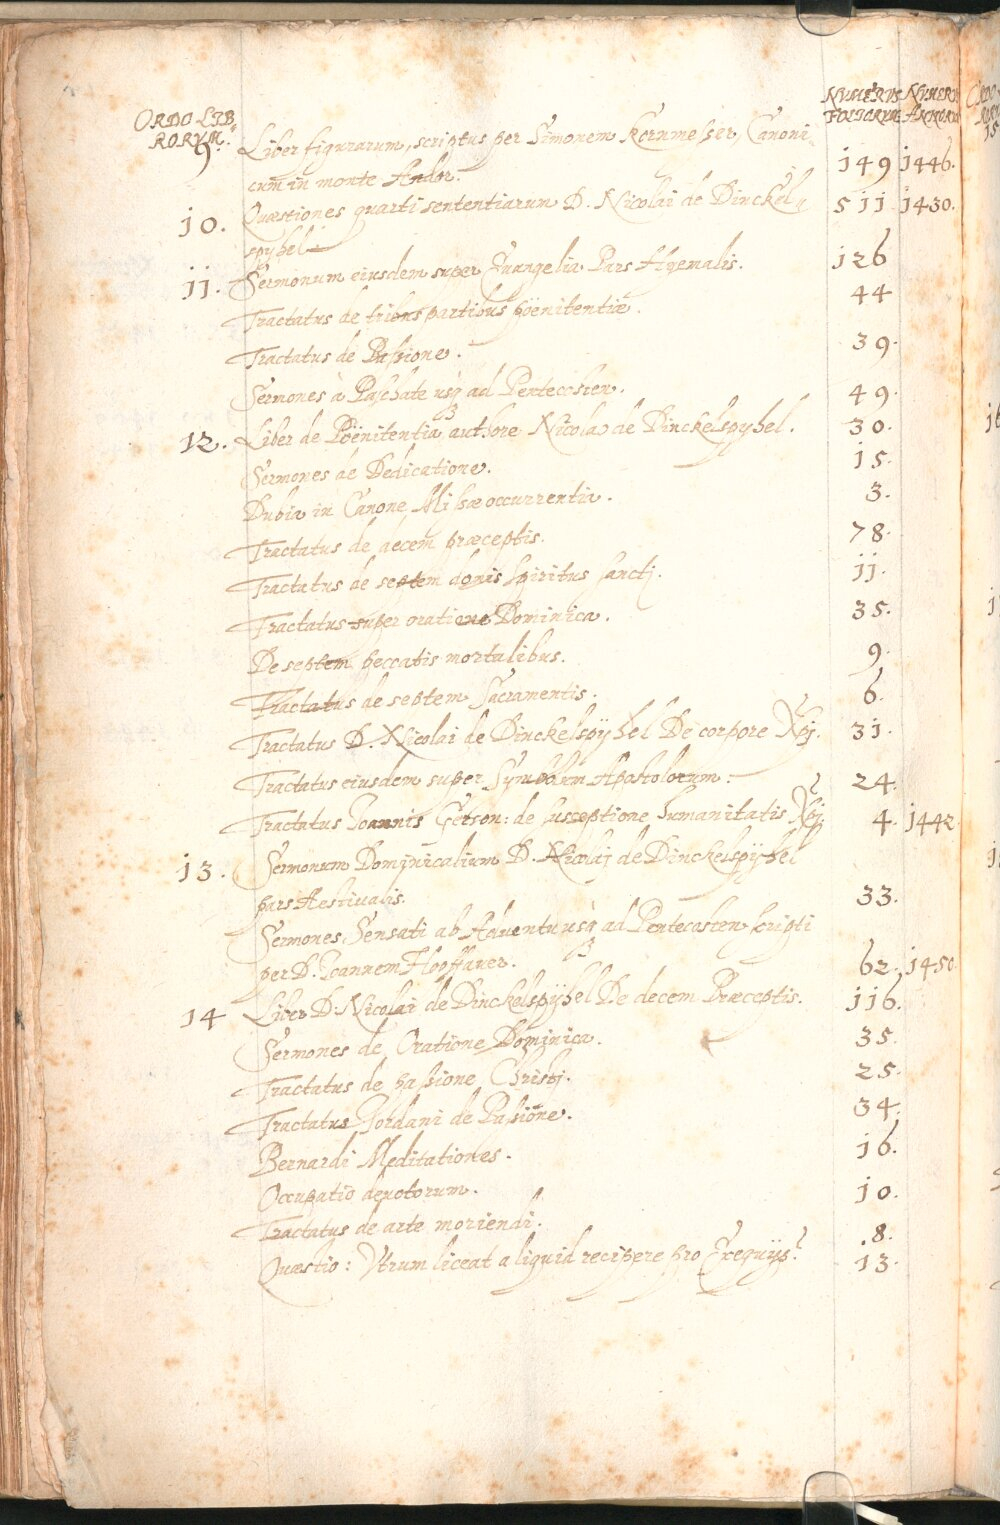 ORDO LIB= NUMERUS NUMERUS
RORUM. FOLIORUM ANNORUM
9. Liber figurarum, scriptus per Simonem Kornmesser, Canoni=
cum in monte Andex. 149 1446.
10. Quæstiones quarti sententiarum D. Nicolai de Dinckel= 511 1430.
spyhel.
11. Sermonum eiusdem super Euangelia Pars Hyemalis. 126
Tractatus de tribus partibus poenitentiæ. 44
Tractatus de Passione. 39.
Sermones à Paschate usq3 ad Pentecosten. 49.
12. Liber de Poenitentia authore Nicolao de Dinckelspyhel. 30.
Sermones de Dedicatione. 15.
Dubia in Canone Missæ occurrentia. 3.
Tractatus de decem præceptis. 78.
Tractatus de septem donis spiritus sancti. 11.
Tractatus super oratione Dominica. 35.
De septem peccatis mortalibus. 9.
Tractatus de septem Sacramentis. 6.
Tractatus D. Nicolai de Dinckelspyhel De corpore Xpi. 31.
Tractatus eiusdem super Symbolum Apostolorum. 24.
Tractatus Joannis Gerson: de susceptione humanitatis Xpi. 4. 1442.
13. Sermonum Dominicalium D. Nicolai de Dinckelspyhel
pars Aestiualis. 33.
Sermones Sensati ab Aduentu usq3 ad Pentecosten scripti
per D. Joannem 62. 1450.
14 Liber D. Nicolai de Dinckelspyhel De decem Præceptis. 116.
Sermones de Oratione Dominica. 35.
Tractatus de passione Christi. 25.
Tractatus Jordani de Passione. 34.
Bernardi Meditationes. 16.
Occupatio deuotorum. 10.
Tractatus de arte moriendi. 8.
Quæstio: Vtrum liceat aliquid recipere pro Exequijs? 13.